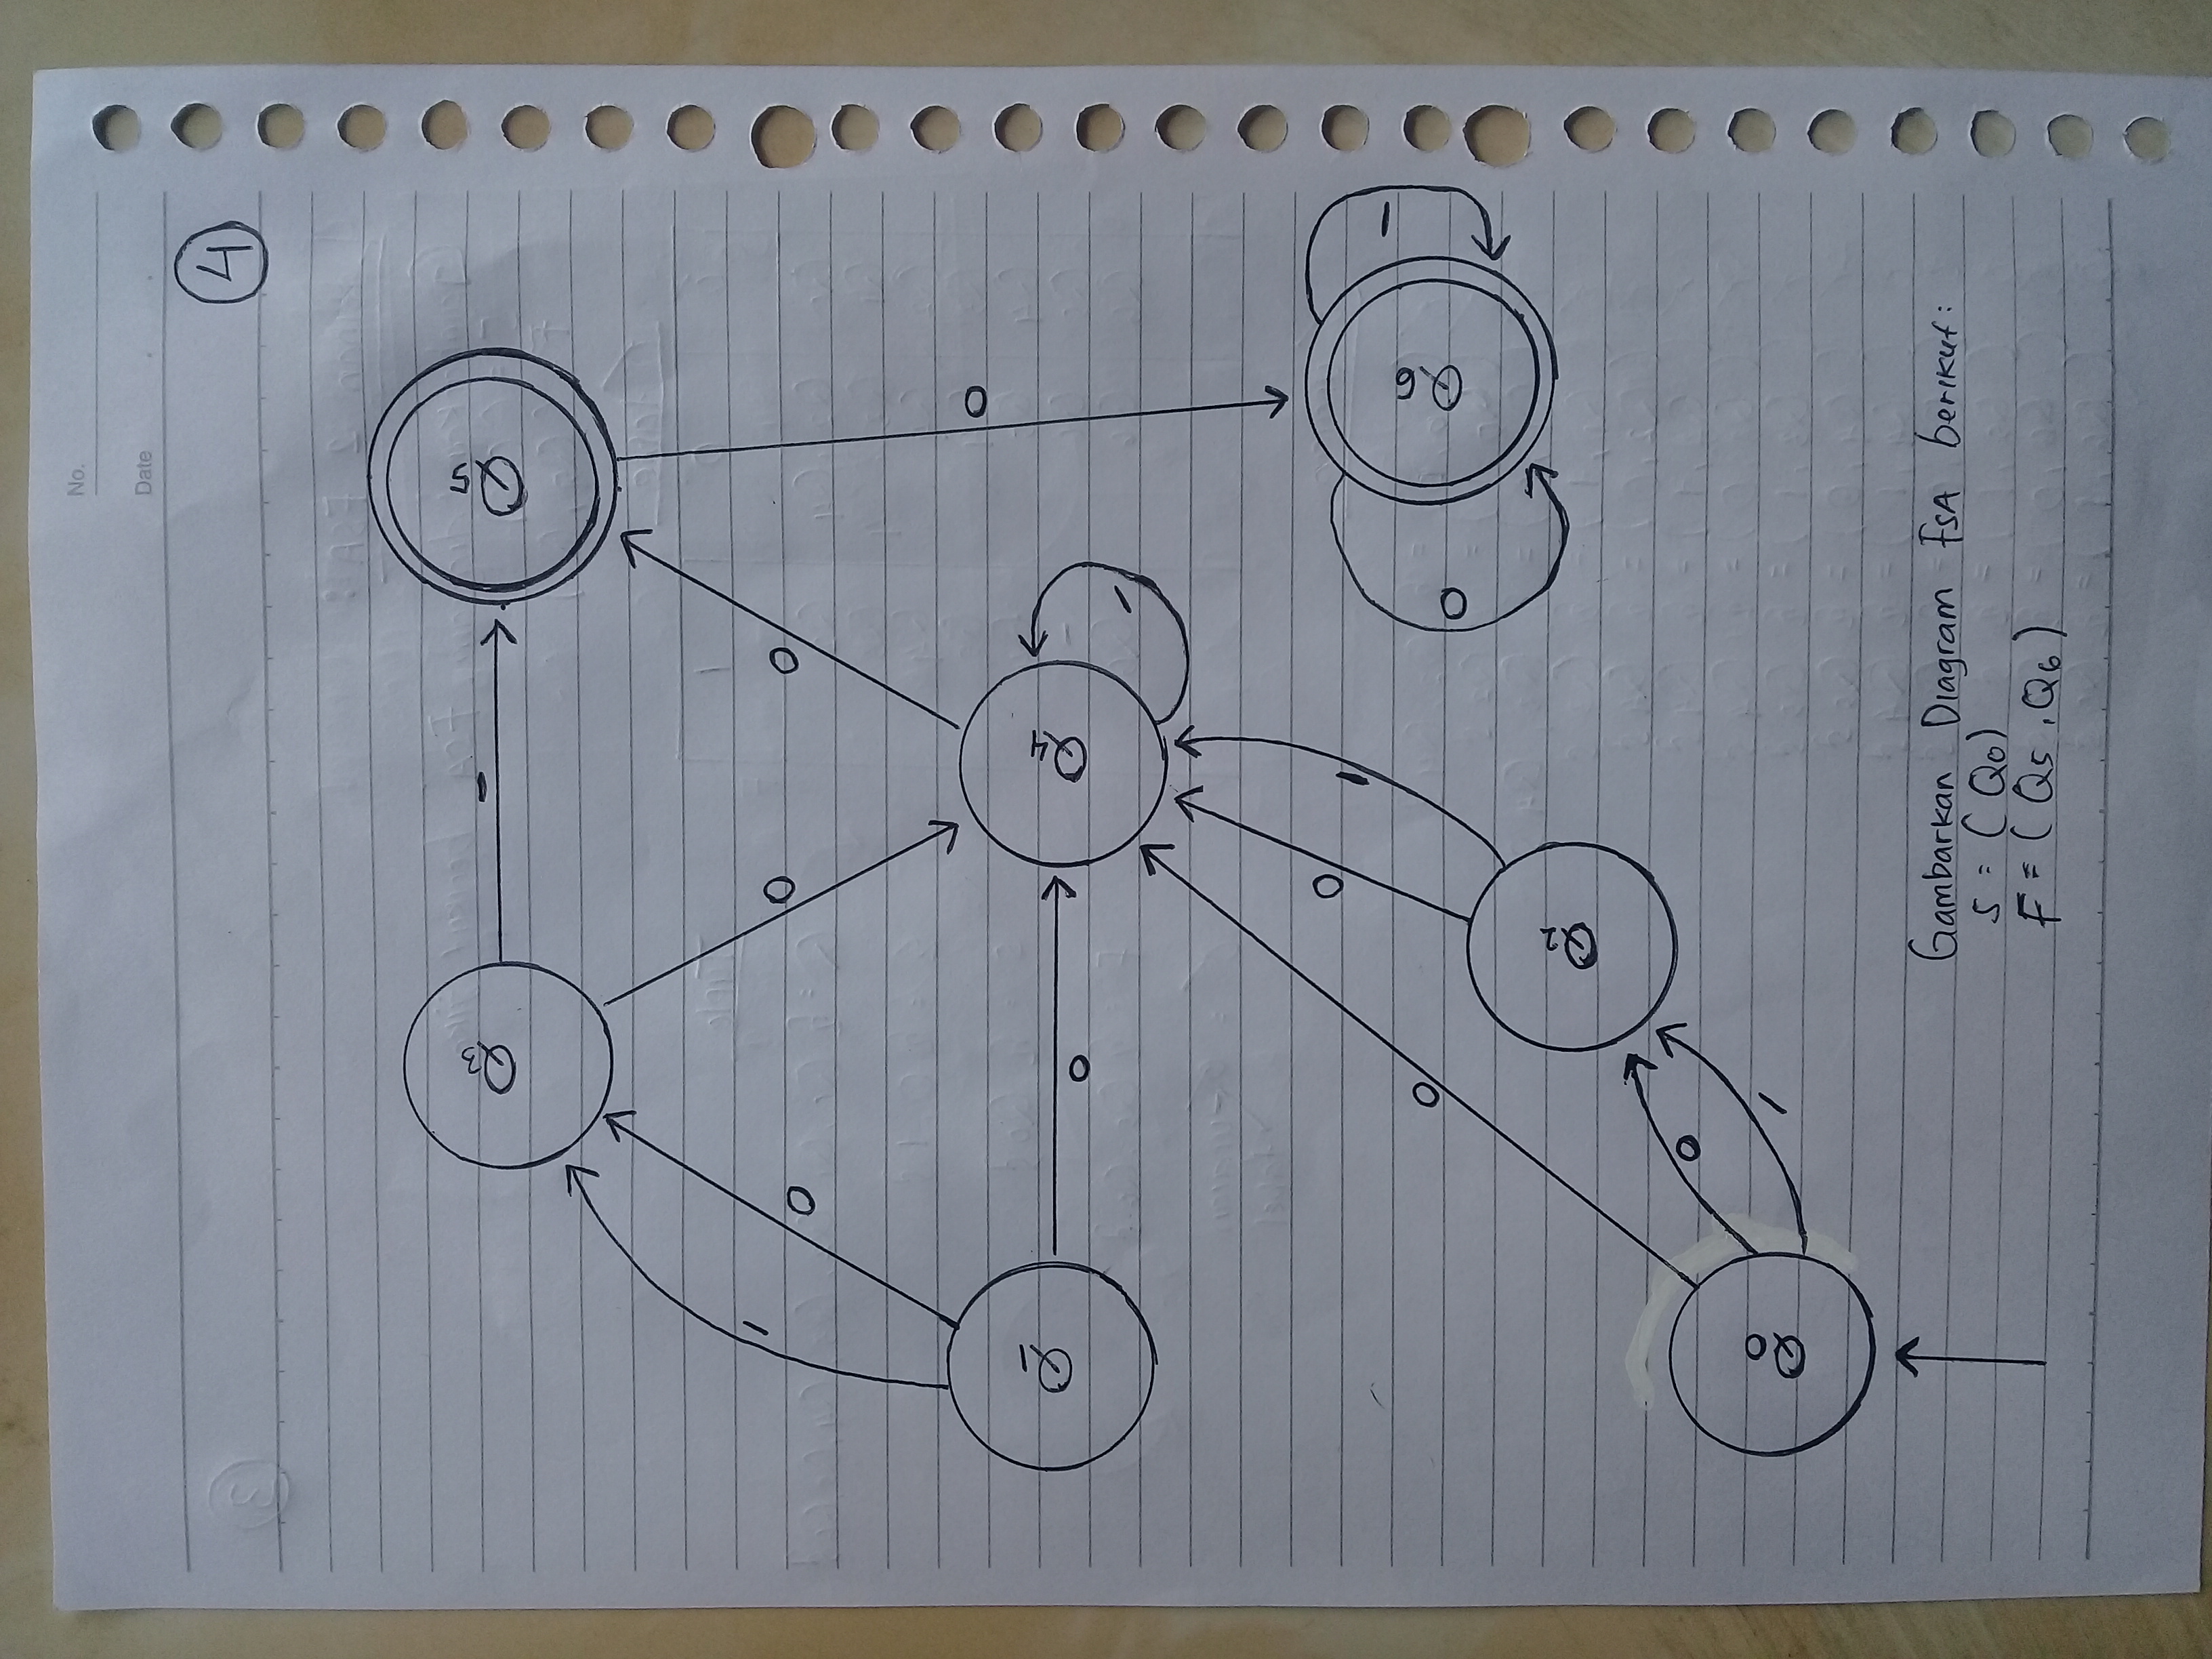 No.
Date
4
Q3
1
Q5
1
0
0
0
0
Q1
0
Q4
1
0
0
1
0
1
Q6
Q2
0
0
1
Q0
Gambarkan Diagram FSA berikut:
S = (Q0)
F = (Q5, Q6)